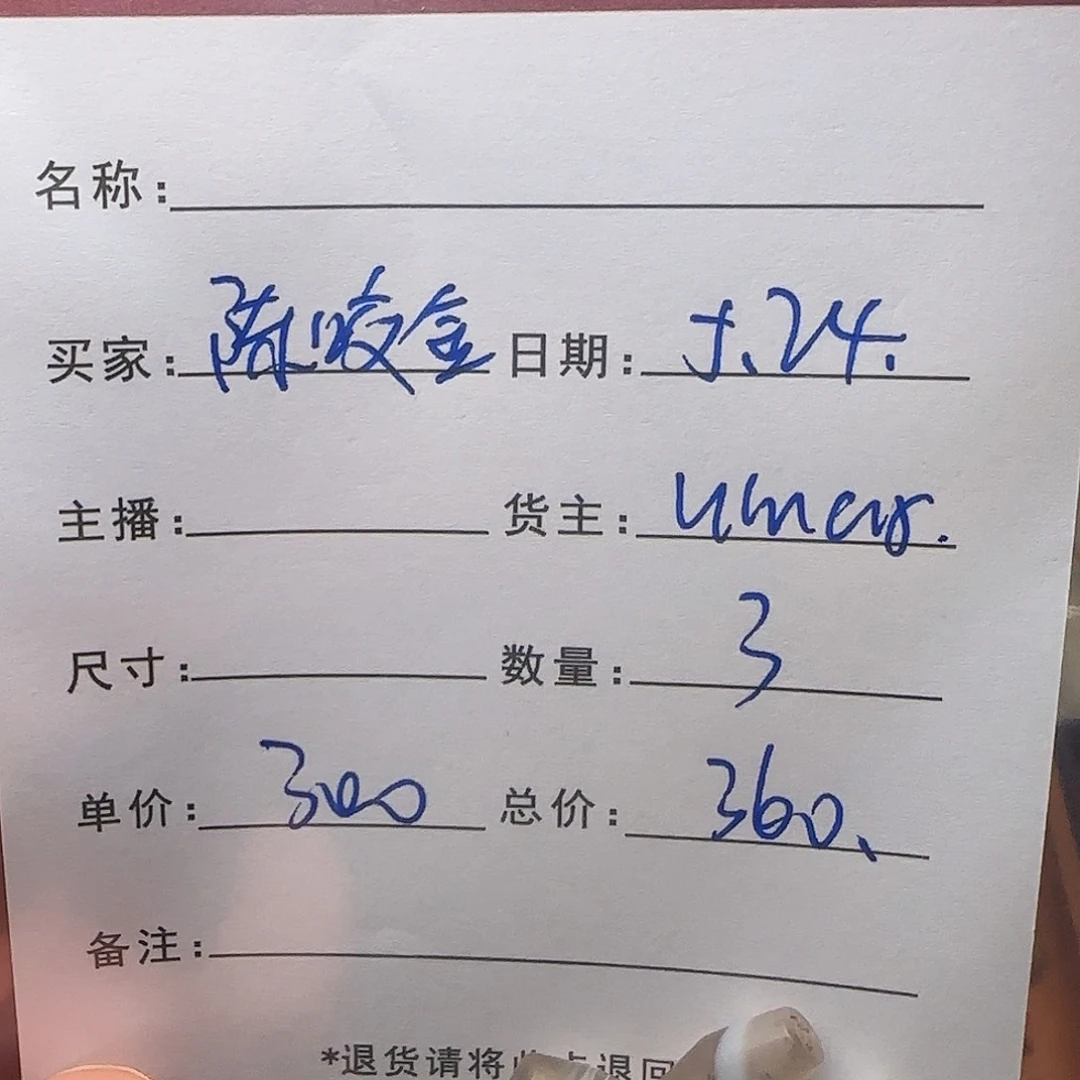 名称:
买家: 陈咬金 日期: 5.24.
主播: 货主:
尺寸: 数量: 3
单价: 300 总价: 360、
备注:
*退货请将 退回